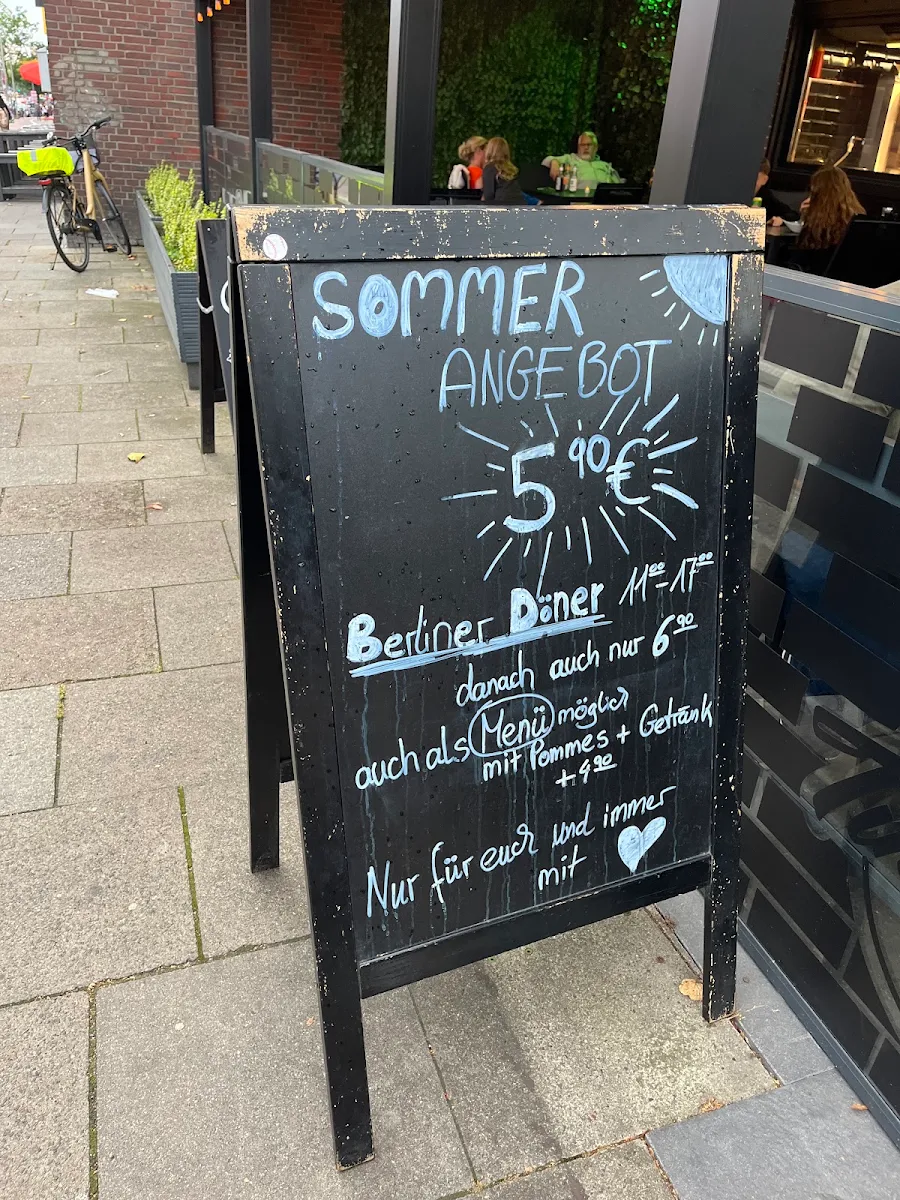 SOMMER
ANGEBOT
5⁹⁰€
Berliner Döner 11⁰⁰-17⁰⁰
danach auch nur 6⁹⁰
auch als Menü möglich
mit Pommes + Getränk
+ 4⁹⁰
Nur für euch und immer
mit ♥